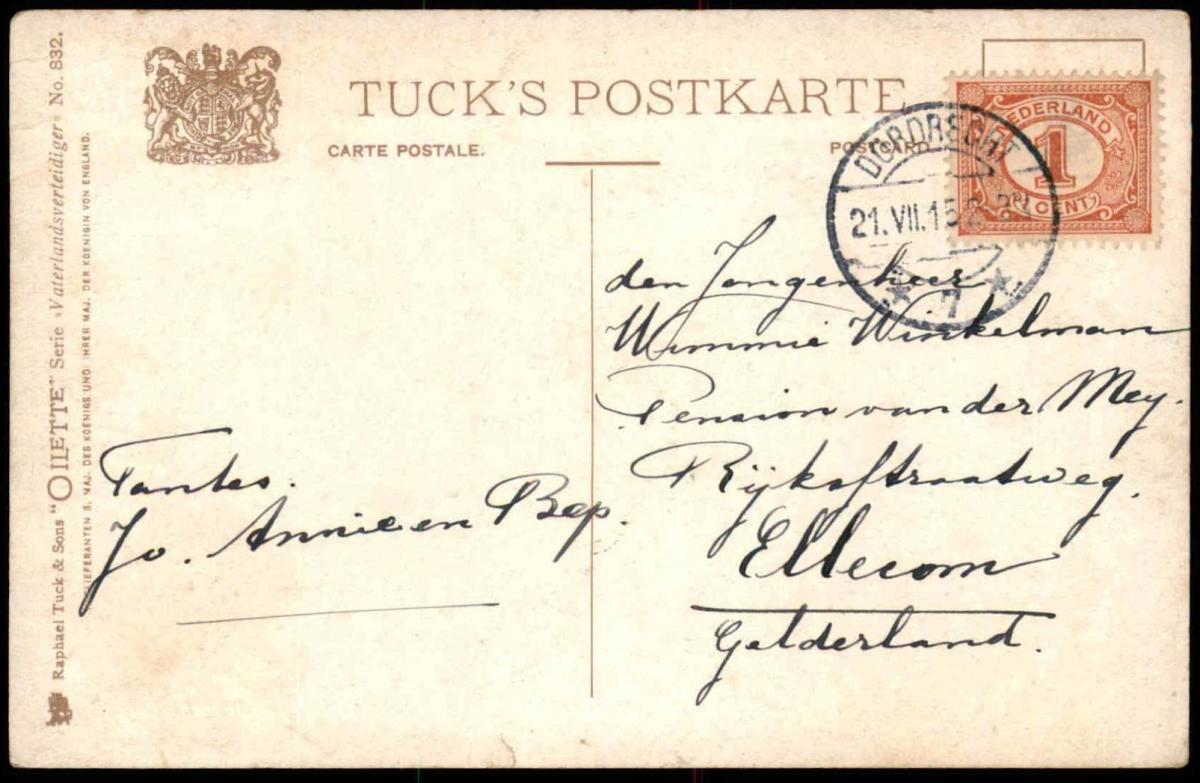 TUCK'S POSTKARTE
CARTE POSTALE.
POSTCARD
NEDERLAND
1
CENT
DORDRECHT
21.VII.15
7
den Jongenheer
Wimmie Winkelman
Pension van der Mey.
Rijksstraatweg.
Ellecom
Gelderland.
Tantes.
Jo. Annie en Bep.
Raphael Tuck & Sons "OILETTE" Serie »Vaterlandsverteidiger« No. 832.
HOFLIEFERANTEN S. MAJ. DES KOENIGS UND IHRER MAJ. DER KOENIGIN VON ENGLAND.